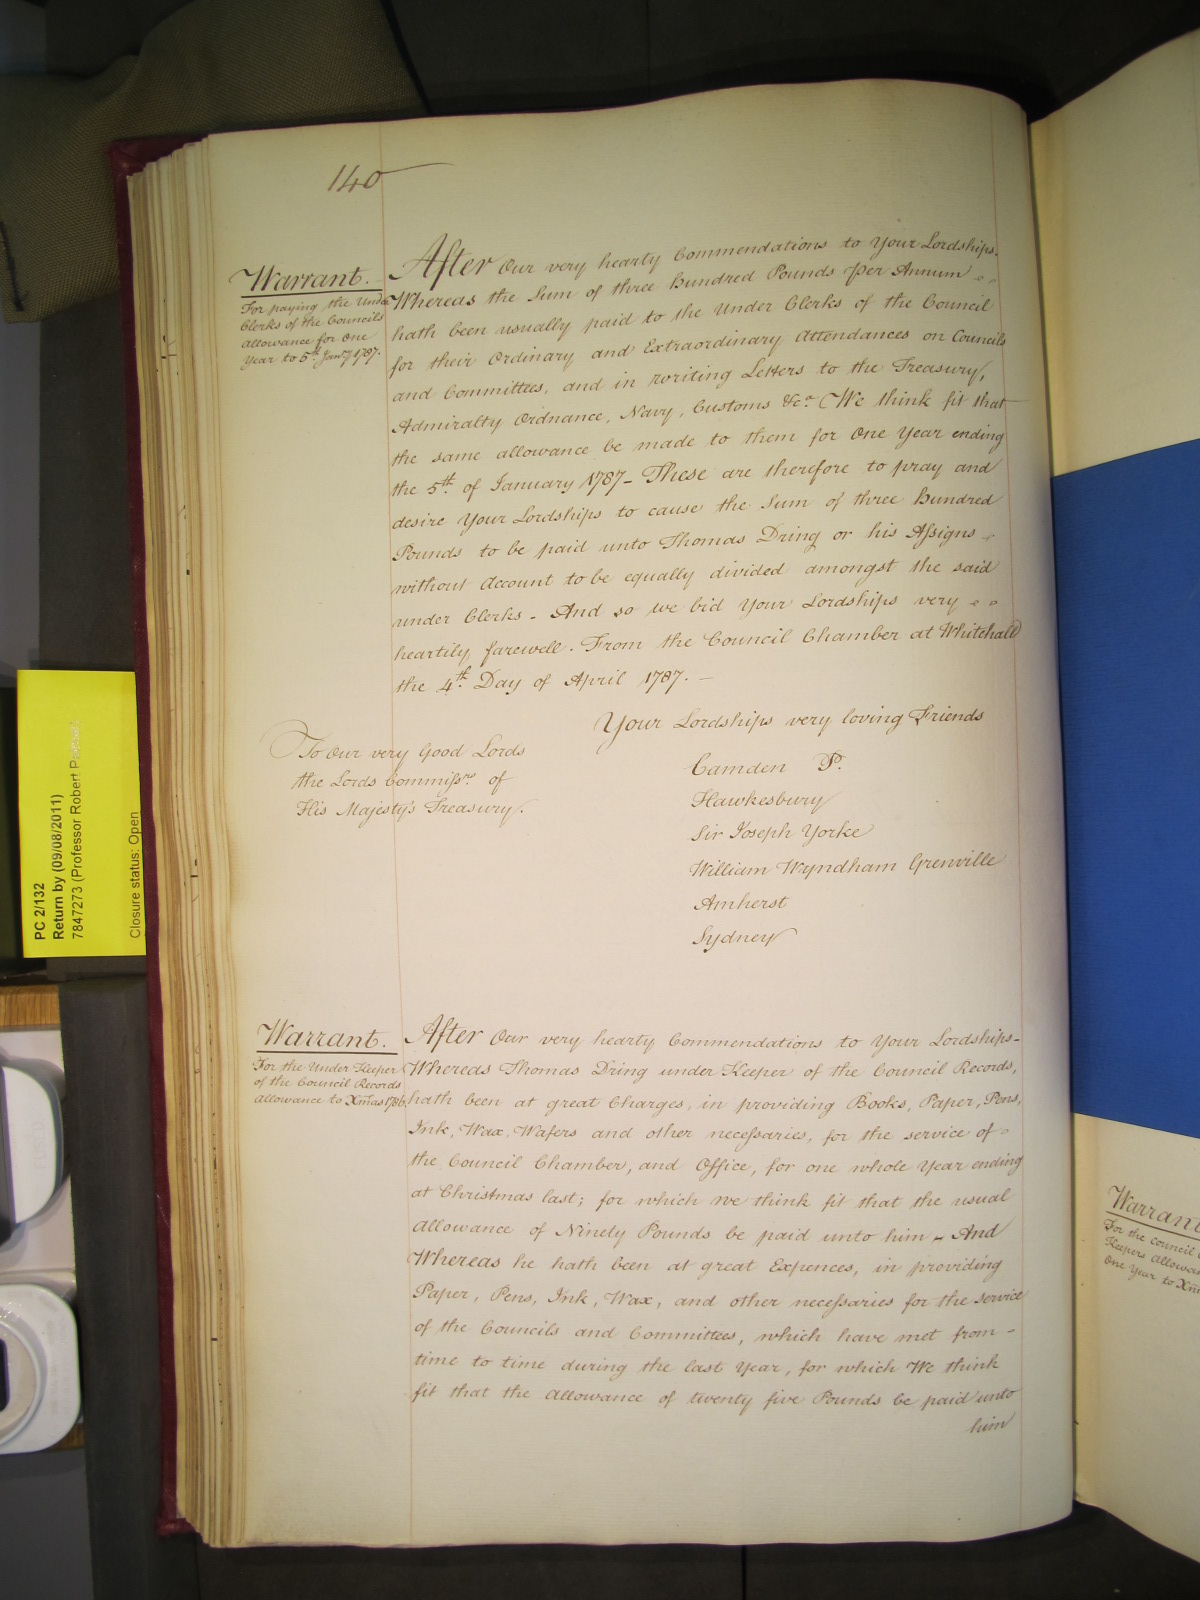 140
Warrant.
For paying the Under
Clerks of the Councils
allowance for One
Year to 5th Janry 1787.
After Our very hearty Commendations to Your Lordships.
Whereas the Sum of three hundred Pounds per Annum
hath been usually paid to the Under Clerks of the Council
for their Ordinary and Extraordinary Attendances on Councils
and Committees, and in writing Letters to the Treasury,
Admiralty Ordnance, Navy, Customs &ca. (We think fit that
the same allowance be made to them for One Year ending
the 5th. of January 1787 - These are therefore to pray and
desire Your Lordships to cause the Sum of three hundred
Pounds to be paid unto Thomas Dring or his Assigns
without Account to be equally divided amongst the said
under Clerks - And so we bid Your Lordships very
heartily farewell. From the Council Chamber at Whitehall
the 4th. Day of April 1787. -
Your Lordships very loving Friends
To Our very Good Lords
the Lords Commissrs. of
His Majesty's Treasury.
Camden P.
Hawkesbury
Sir Joseph Yorke
William Wyndham Grenville
Amherst
Sydney
Warrant.
For the Under Keeper
of the Council Records
allowance to Xmas 1786.
After Our very hearty Commendations to Your Lordships -
Whereas Thomas Dring under Keeper of the Council Records,
hath been at great Charges, in providing Books, Paper, Pens,
Ink, Wax, Wafers and other necessaries, for the service of
the Council Chamber, and Office, for one whole Year ending
at Christmas last; for which we think fit that the usual
Allowance of Ninety Pounds be paid unto him - And
Whereas he hath been at great Expences, in providing
Paper, Pens, Ink, Wax, and other necessaries for the service
of the Councils and Committees, which have met from -
time to time during the last Year, for which We think
fit that the allowance of twenty five Pounds be paid unto
him
PC 2/132
Return by (09/08/2011)
7847273 (Professor Robert
Closure status: Open
Warrant
For the Council
Keepers
One Year to